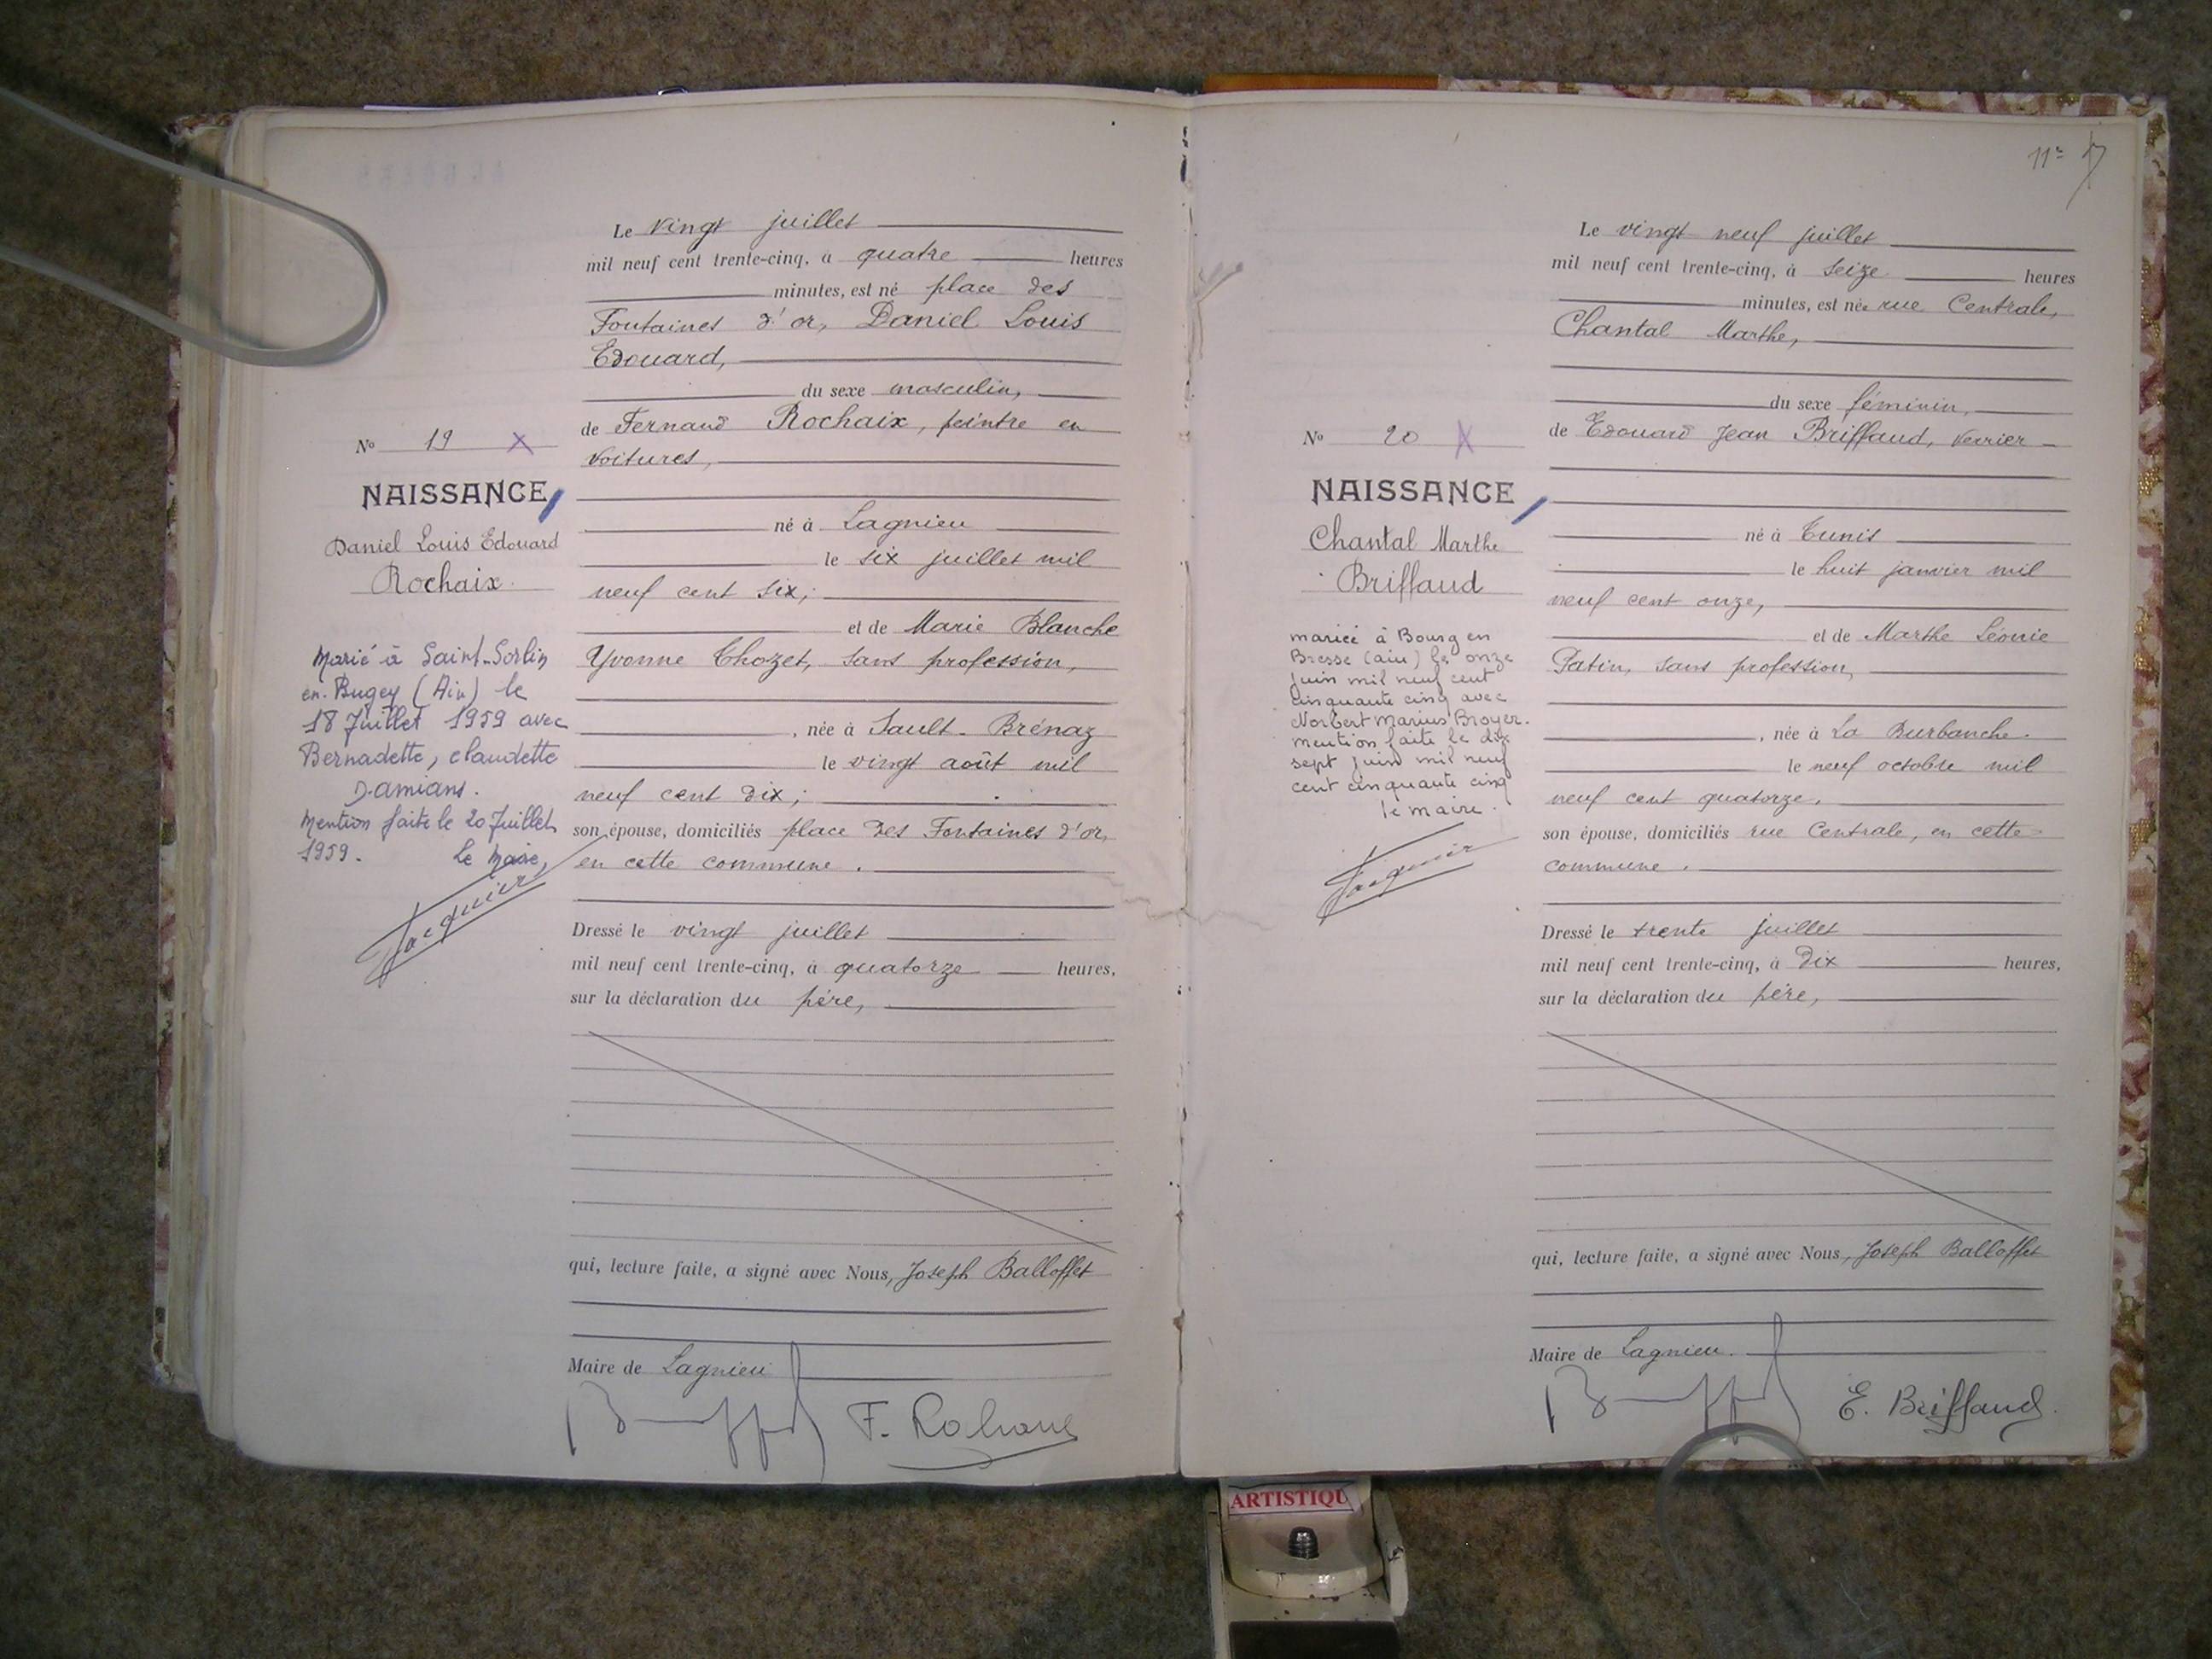 Le vingt juillet
mil neuf cent trente-cinq, à quatre heures
minutes, est né place des
Fontaines d'or, Daniel Louis
Edouard,
du sexe masculin,
de Fernand Rochaix, peintre en
voitures,
né à Lagnieu
le six juillet mil
neuf cent six;
et de Marie Blanche
Yvonne Chozet, sans profession,
, née à Sault-Brénaz
le vingt août mil
neuf cent dix;
son épouse, domiciliés place des Fontaines d'or,
en cette commune.
Dressé le vingt juillet
mil neuf cent trente-cinq, à quatorze heures,
sur la déclaration du père,
qui, lecture faite, a signé avec Nous, Joseph Balloffet
Maire de Lagnieu
No 19 X
NAISSANCE
Daniel Louis Edouard
Rochaix
Marié à Saint-Sorlin
en-Bugey (Ain) le
18 Juillet 1959 avec
Bernadette, claudette
Damians.
Mention faite le 20 Juillet
1959. Le Maire,
Jacquier
11e
Le vingt neuf juillet
mil neuf cent trente-cinq, à seize heures
minutes, est née rue Centrale,
Chantal Marthe,
du sexe féminin,
de Edouard Jean Briffaud, verrier
né à Tunis
le huit janvier mil
neuf cent onze,
et de Marthe Léonie
Patin, sans profession,
, née à La Burbanche.
le neuf octobre mil
neuf cent quatorze.
son épouse, domiciliés rue Centrale, en cette
commune.
Dressé le trente juillet
mil neuf cent trente-cinq, à dix heures,
sur la déclaration du père,
qui, lecture faite, a signé avec Nous, Joseph Balloffet
Maire de Lagnieu.
E. Briffaud.
No 20 X
NAISSANCE
Chantal Marthe
Briffaud
mariée à Bourg en
Bresse (ain) le onze
juin mil neuf cent
cinquante cinq avec
Norbert Marius Broyer.
mention faite le dix
sept juin mil neuf
cent cinquante cinq
le maire.
Jacquier
ARTISTIQU